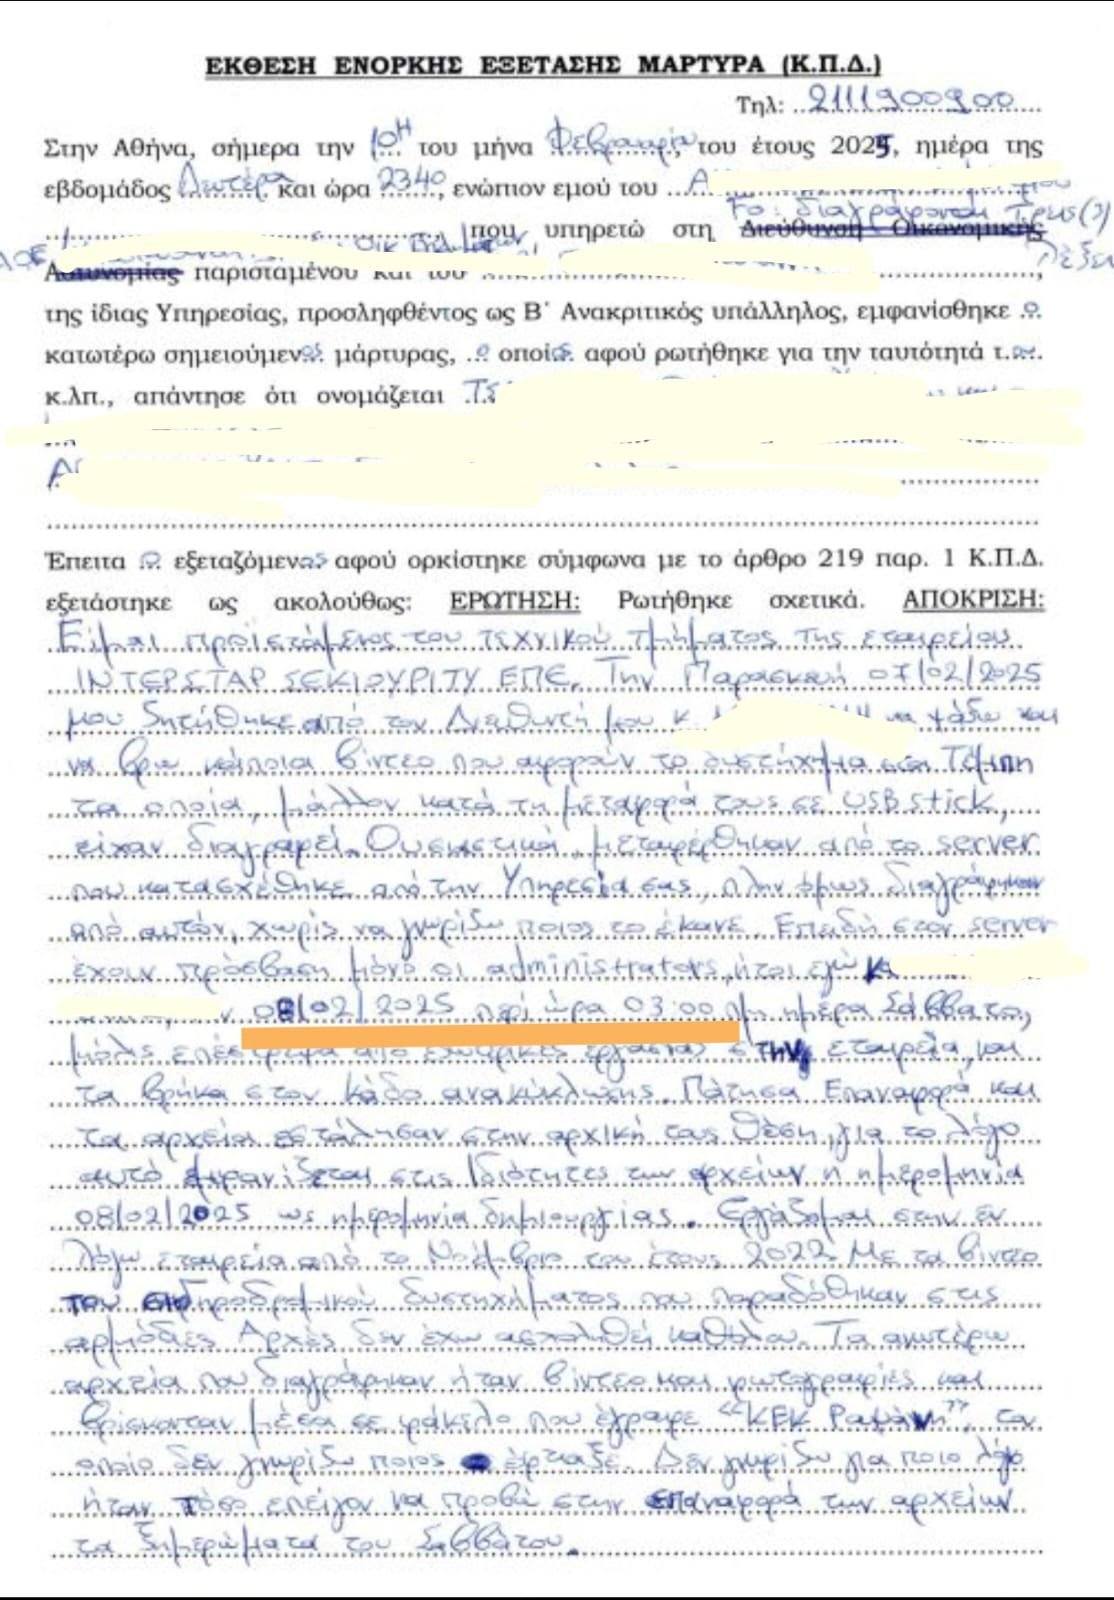 ΕΚΘΕΣΗ ΕΝΟΡΚΗΣ ΕΞΕΤΑΣΗΣ ΜΑΡΤΥΡΑ (Κ.Π.Δ.)
Τηλ: 2111900900
Στην Αθήνα, σήμερα την 10η του μήνα Φεβρουαρίου, του έτους 2025, ημέρα της
εβδομάδος Δευτέρα και ώρα 2340, ενώπιον εμού του Α
Το: διαγράφονται Τρεις (3)
που υπηρετώ στη Διεύθυνση Οικονομικής
λέξεις
Αστυνομίας παρισταμένου και του
της ίδιας Υπηρεσίας, προσληφθέντος ως Β΄ Ανακριτικός υπάλληλος, εμφανίσθηκε ο
κατωτέρω σημειούμενος μάρτυρας, ο οποίος αφού ρωτήθηκε για την ταυτότητά τ
κ.λπ., απάντησε ότι ονομάζεται ΤΣ
Α
Έπειτα ο εξεταζόμενος αφού ορκίστηκε σύμφωνα με το άρθρο 219 παρ. 1 Κ.Π.Δ.
εξετάστηκε ως ακολούθως: ΕΡΩΤΗΣΗ: Ρωτήθηκε σχετικά. ΑΠΟΚΡΙΣΗ:
Είμαι προϊστάμενος του τεχνικού τμήματος της εταιρείας
ΙΝΤΕΡΣΤΑΡ ΣΕΚΙΟΥΡΙΤΥ ΕΠΕ. Την Παρασκευή 07/02/2025
μου ζητήθηκε από τον Διευθυντή μου κ. να ψάξω και
να βρω κάποια βίντεο που αφορούν το δυστήχημα στα Τέμπη
τα οποία, μάλλον κατά τη μεταφορά τους σε USB stick,
είχαν διαγραφεί. Ουσιαστικά, μεταφέρθηκαν από το server
που κατασχέθηκε από την Υπηρεσία σας, πλην όμως διαγράφηκαν
από αυτόν, χωρίς να γνωρίζω ποιος το έκανε. Επειδή στον server
έχουν πρόσβαση μόνο οι administrators, ήτοι εγώ κ
08/02/2025 περί ώρα 03:00 πμ ημέρα Σάββατο,
μόλις επέστρεψα από εξωτερικές εργασίες στην εταιρεία, και
τα βρήκα στον κάδο ανακύκλωσης. Πάτησα Επαναφορά και
τα αρχεία εστάλησαν στην αρχική τους θέση, για το λόγο
αυτό εμφανίζεται στις Ιδιότητες των αρχείων η ημερομηνία
08/02/2025 ως ημερομηνία δημιουργίας. Εργάζομαι στην εν
λόγω εταιρεία από το Νοέμβριο του έτους 2022. Με τα βίντεο
του σιδηροδρομικού δυστηχήματος που παραδόθηκαν στις
αρμόδιες Αρχές δεν έχω ασχοληθεί καθόλου. Τα ανωτέρω
αρχεία που διαγράφηκαν ήταν βίντεο και φωτογραφίες και
βρίσκονταν μέσα σε φάκελο που έγραφε "ΚΕΚ Ραψάνη", το
οποίο δεν γνωρίζω ποιος έφτιαξε. Δεν γνωρίζω για ποιο λόγο
ήταν τόσο επείγον να προβώ στην επαναφορά των αρχείων
τα ξημερώματα του Σαββάτου.